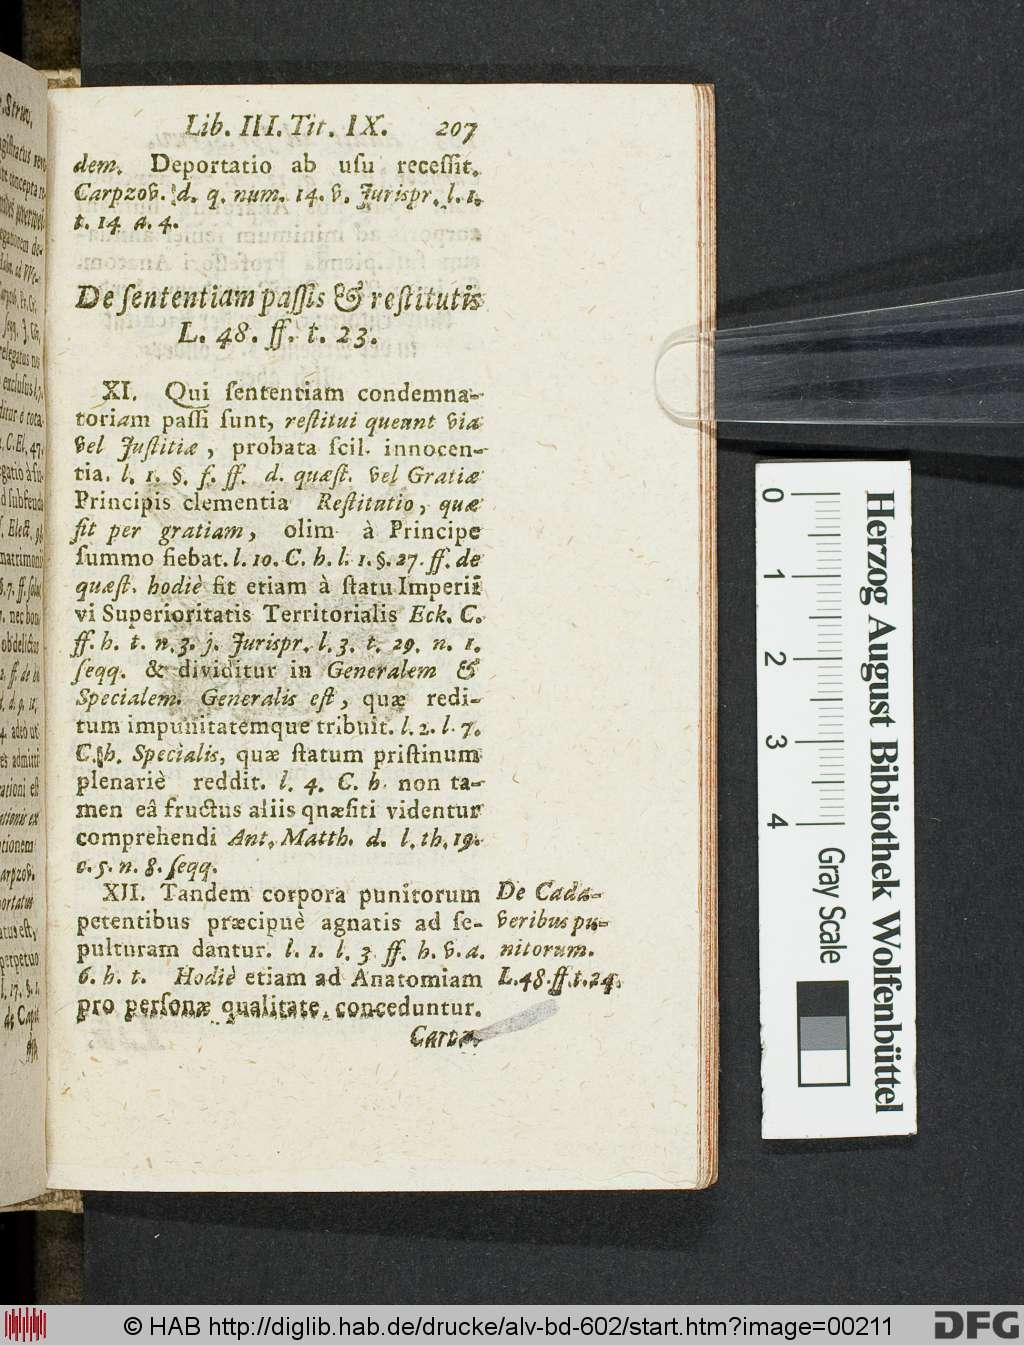 Lib. III. Tit. IX. 207
dem. Deportatio ab uſu receſſit.
Carpzov. d. q. num. 14. v. Juriſpr. l. 1.
t. 14 a. 4.
De ſententiam paſſis & reſtitutis
L. 48. ff. t. 23.
XI. Qui ſententiam condemna-
toriam paſſi ſunt, reſtitui queunt via
vel Juſtitiæ, probata ſcil. innocen-
tia. l. 1. §. f. ff. d. quæſt. vel Gratiæ
Principis clementia Reſtitutio, quæ
fit per gratiam, olim à Principe
ſummo fiebat. l. 10. C. h. l. 1. §. 27. ff. de
quæſt. hodiè fit etiam à ſtatu Imperii
vi Superioritatis Territorialis Eck. C.
ff. h. t. n. 3. j. Juriſpr. l. 3. t. 29. n. 1.
ſeqq. & dividitur in Generalem &
Specialem. Generalis eſt, quæ redi-
tum impunitatemque tribuit. l. 2. l. 7.
C. h. Specialis, quæ ſtatum priſtinum
plenariè reddit. l. 4. C. h. non ta-
men eâ fructus aliis qnæſiti videntur
comprehendi Ant. Matth. d. l. th. 19.
c. 5. n. 8. ſeqq.
XII. Tandem corpora punitorum
petentibus præcipuè agnatis ad ſe-
pulturam dantur. l. 1. l. 3 ff. h. v. a.
6. h. t. Hodiè etiam ad Anatomiam
pro perſonæ qualitate conceduntur.
De Cada-
veribus pu-
nitorum.
L. 48. ff. t. 24.
0 1 2 3 4
Gray Scale
Herzog August Bibliothek Wolfenbüttel
© HAB http://diglib.hab.de/drucke/alv-bd-602/start.htm?image=00211
DFG